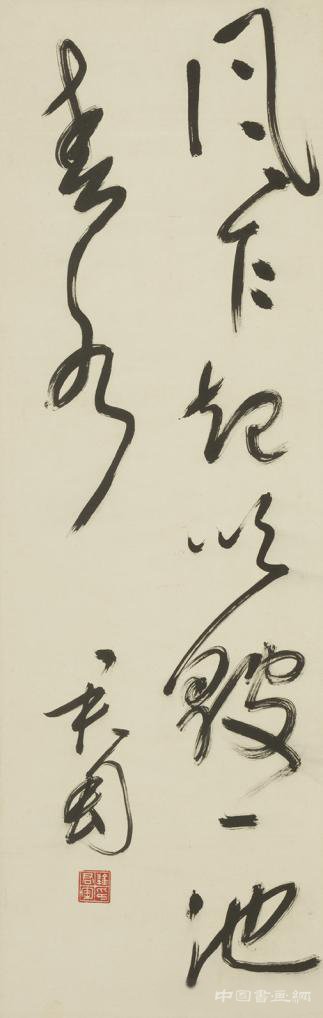 風乍起吹皺一池
春水
君匋
中国書画網